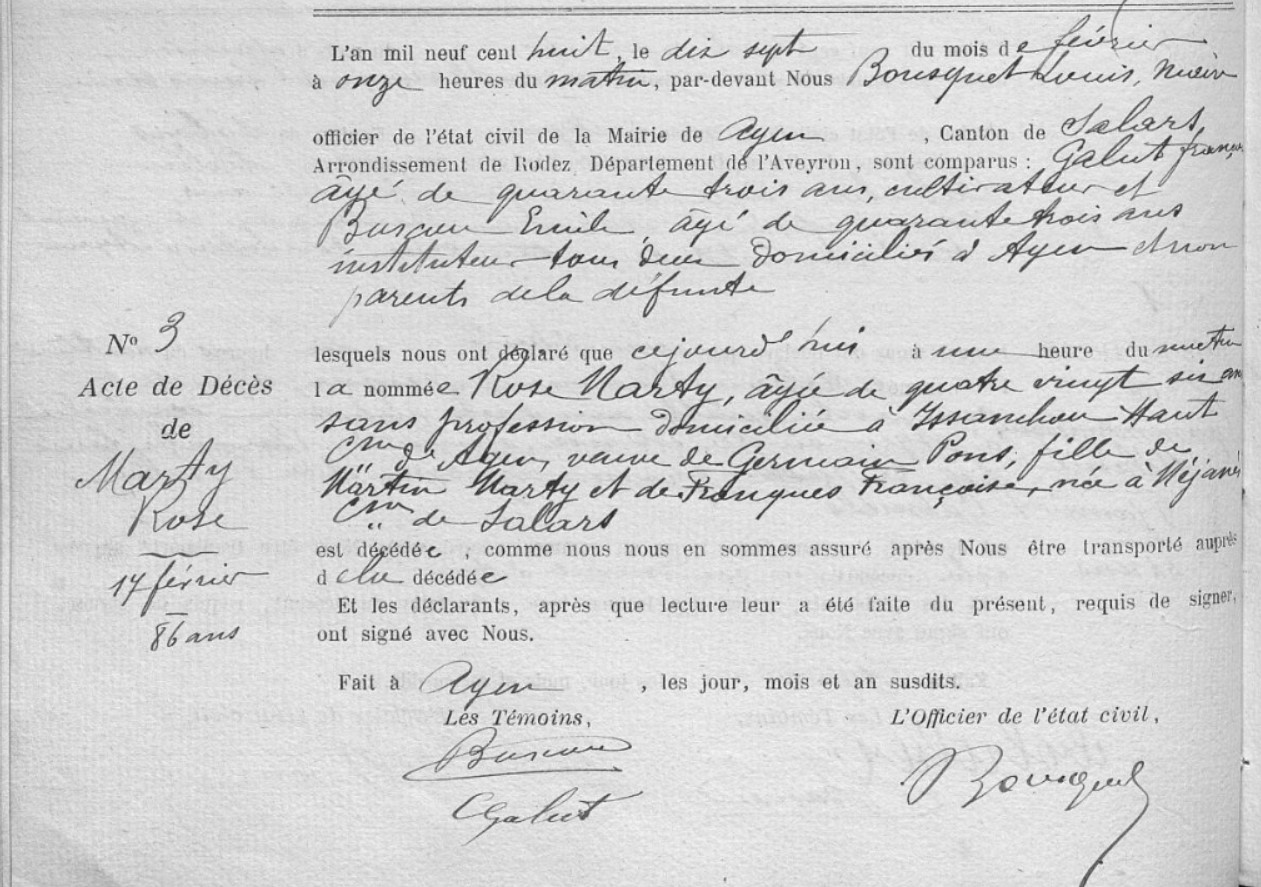 L'an mil neuf cent huit, le dix sept du mois de février
à onze heures du matin, par-devant Nous Bousquet Louis, maire
officier de l'état civil de la Mairie de Agen, Canton de Salars,
Arrondissement de Rodez Département de l'Aveyron, sont comparus : Galut françois
âgé de quarante trois ans, cultivateur et
Emile, âgé de quarante trois ans
instituteur tous deux domiciliés à Agen et non
parents de la défunte
N° 3
Acte de Décès
de
Marty
Rose
17 février
86 ans
lesquels nous ont déclaré que cejourd'hui à une heure du matin
la nommée Rose Marty, âgée de quatre vingt six ans
sans profession domiciliée à Issanchou Haut
Cne de Agen, veuve de Germain Pons, fille de
Martin Marty et de Franques Françoise, née à
Cne de Salars
est décédée, comme nous nous en sommes assuré après Nous être transporté auprès
d elle décédée
Et les déclarants, après que lecture leur a été faite du présent, requis de signer,
ont signé avec Nous.
Fait à Agen, les jour, mois et an susdits.
Les Témoins,
L'Officier de l'état civil,
Galut
Bousquet